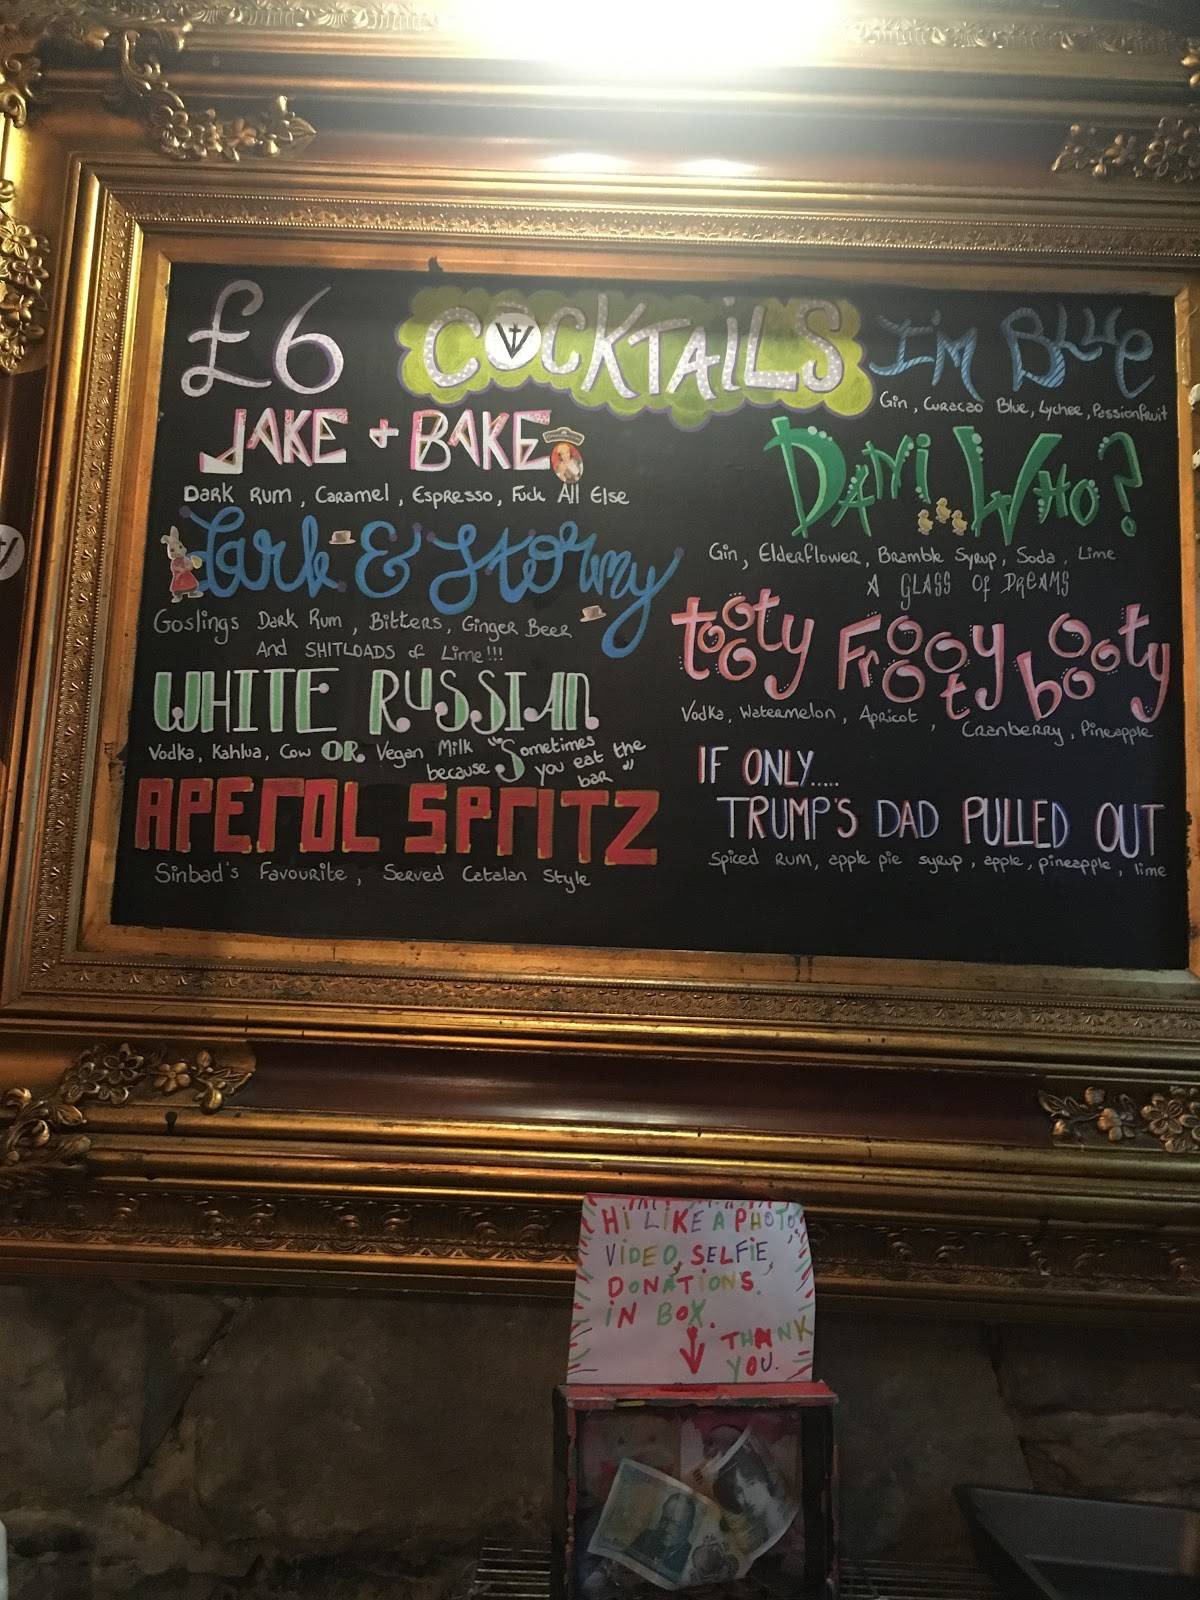 £6 COCKTAILS
JAKE + BAKE
Dark Rum, Caramel, Espresso, Fuck All Else
Dark & Stormy
Goslings Dark Rum, Bitters, Ginger Beer
And SHITLOADS of Lime!!!
WHITE RUSSIAN
Vodka, Kahlua, Cow OR Vegan Milk "Sometimes
because you eat the
bar"
APEROL SPRITZ
Sinbad's Favourite, Served Catalan Style
I'm Blue
Gin, Curacao Blue, Lychee, Passionfruit
Dami Who?
Gin, Elderflower, Bramble Syrup, Soda, Lime
A GLASS Of DREAMS
tooty Frooty booty
Vodka, Watermelon, Apricot, Cranberry, Pineapple
IF ONLY.....
TRUMP'S DAD PULLED OUT
Spiced Rum, apple pie syrup, apple, pineapple, lime
HI LIKE A PHOTO,
VIDEO, SELFIE,
DONATIONS.
IN BOX.
THANK
YOU.